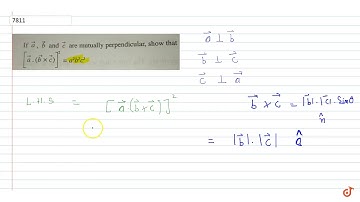 7811
If $\vec{a}$, $\vec{b}$ and $\vec{c}$ are mutually perpendicular, show that
$[\vec{a}.(\vec{b}\times\vec{c})]^2 = a^2b^2c^2$
$\vec{a} \perp \vec{b}$
$\vec{b} \perp \vec{c}$
$\vec{c} \perp \vec{a}$
L.H.S = $[\vec{a}.(\vec{b}\times\vec{c})]^2$
$\vec{b} \times \vec{c} = |\vec{b}|.|\vec{c}|.\sin\theta$
$\hat{n}$
= $|\vec{b}|.|\vec{c}|$ $\hat{a}$
doubtnut